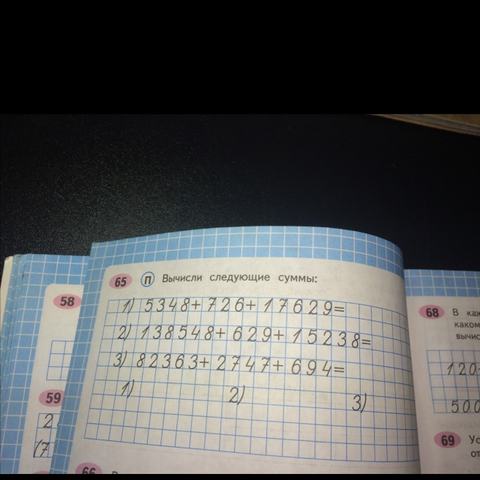 65 П Вычисли следующие суммы:
1) 5348+726+17629=
2) 138548+629+15238=
3) 82363+2747+694=
1) 2) 3)
66
58
59
2
17
68 В
каком
вычис
120
500
69 Ус
от